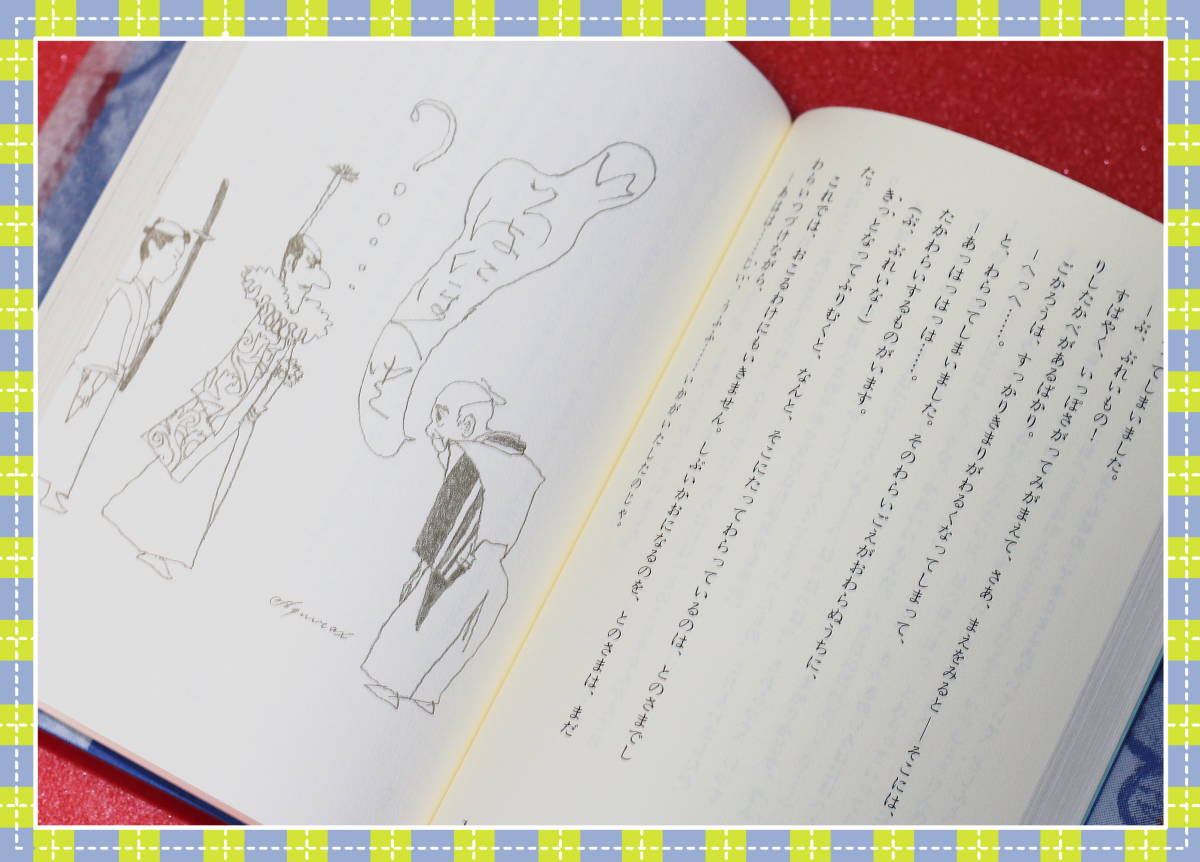 てしまいました。
―ぶ、ぶれいもの！
すばやく、いっぽさがってみがまえて、さあ、まえをみると――そこには、
りしたかべがあるばかり。
こかろうは、すっかりきまりがわるくなってしまって、
―へっへ……。
と、わらってしまいました。そのわらいごえがおわらぬうちに、
―あっはっはっは……。
たかわらいするものがいます。
（ぶ、ぶれいな！）
きっとなってふりむくと、なんと、そこにたってわらっているのは、とのさまでし
た。
これでは、おこるわけにもいきません。しぶいかおになるのを、とのさまは、まだ
わらいつづけながら、
―あはは……
うふふ……いかがいたしたのじゃ。
?